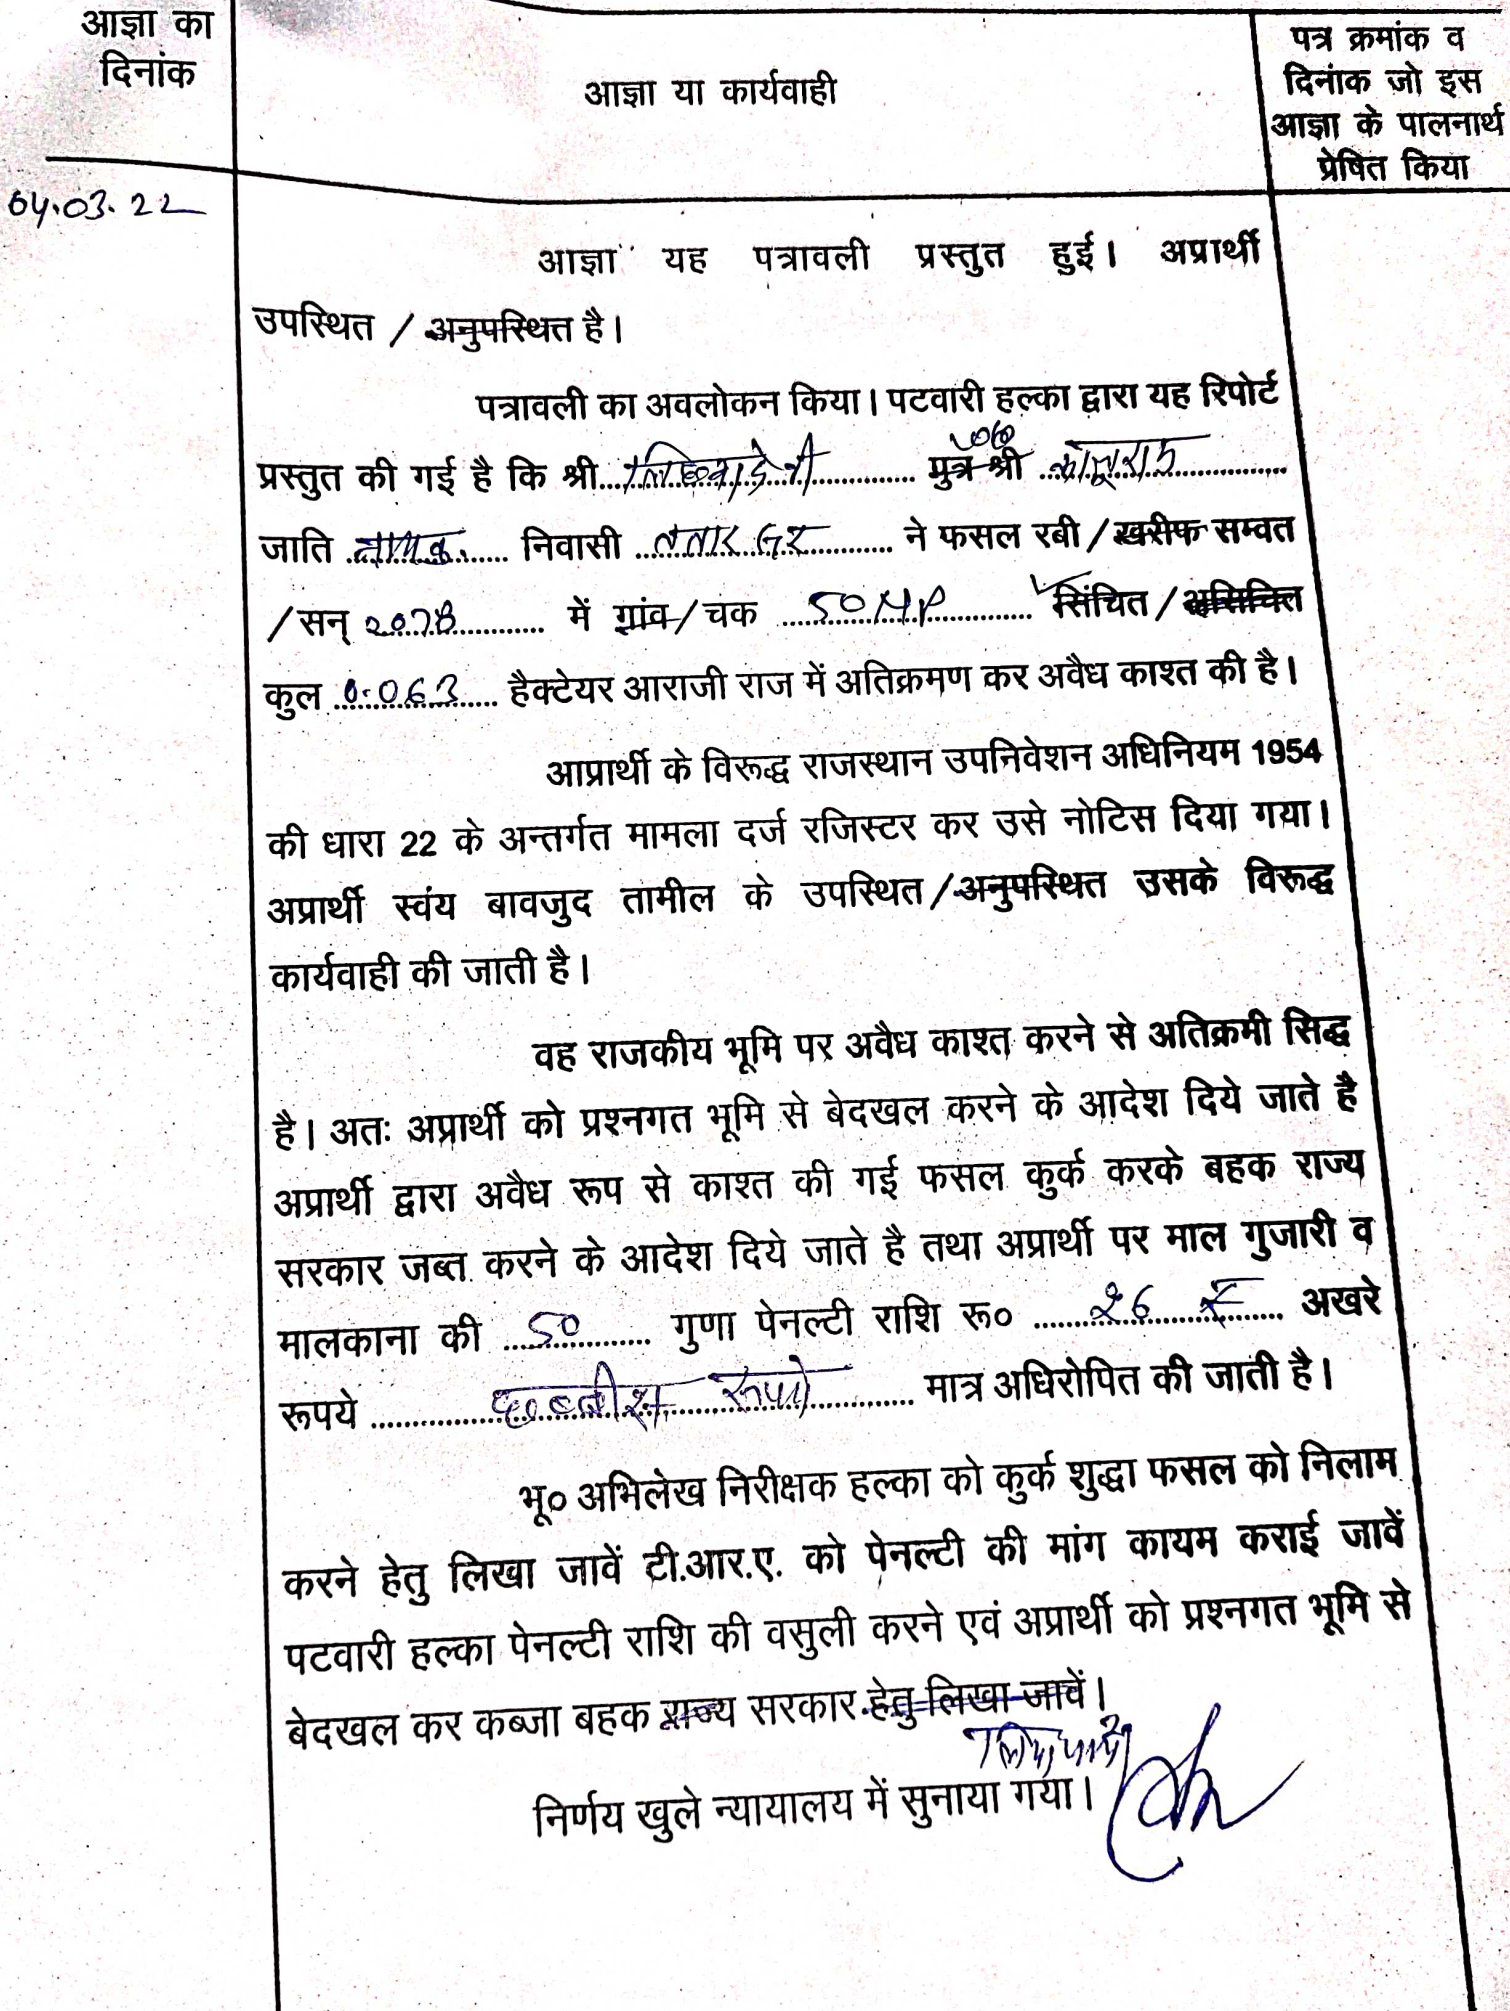 आज्ञा का
दिनांक
आज्ञा या कार्यवाही
पत्र क्रमांक व
दिनांक जो इस
आज्ञा के पालनार्थ
प्रेषित किया
04.03.22
आज्ञा यह पत्रावली प्रस्तुत हुई। अप्रार्थी
उपस्थित / अनुपस्थित है।
पत्रावली का अवलोकन किया। पटवारी हल्का द्वारा यह रिपोर्ट
प्रस्तुत की गई है कि श्री.................... पुत्र श्री ....................
जाति .......... निवासी .................... ने फसल रबी / खरीफ सम्वत
/ सन् 2078 में गांव / चक 50 NP सिंचित / असिचित
कुल 0.063 हैक्टेयर आराजी राज में अतिक्रमण कर अवैध काश्त की है।
आप्रार्थी के विरूद्ध राजस्थान उपनिवेशन अधिनियम 1954
की धारा 22 के अन्तर्गत मामला दर्ज रजिस्टर कर उसे नोटिस दिया गया।
अप्रार्थी स्वंय बावजुद तामील के उपस्थित / अनुपस्थित उसके विरूद्ध
कार्यवाही की जाती है।
वह राजकीय भूमि पर अवैध काश्त करने से अतिक्रमी सिद्ध
है। अतः अप्रार्थी को प्रश्नगत भूमि से बेदखल करने के आदेश दिये जाते है
अप्रार्थी द्वारा अवैध रूप से काश्त की गई फसल कुर्क करके बहक राज्य
सरकार जब्त करने के आदेश दिये जाते है तथा अप्रार्थी पर माल गुजारी व
मालकाना की 50 गुणा पेनल्टी राशि रू० 26 अखरे
रूपये छब्बीस रूपये मात्र अधिरोपित की जाती है।
भू० अभिलेख निरीक्षक हल्का को कुर्क शुद्धा फसल को निलाम
करने हेतु लिखा जावें टी.आर.ए. को पेनल्टी की मांग कायम कराई जावें
पटवारी हल्का पेनल्टी राशि की वसुली करने एवं अप्रार्थी को प्रश्नगत भूमि से
बेदखल कर कब्जा बहक राज्य सरकार हेतु लिखा जावें।
निर्णय खुले न्यायालय में सुनाया गया।